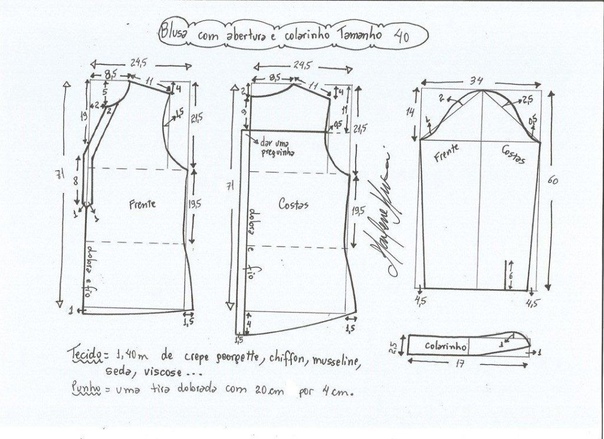 Blusa com abertura e colarinho Tamanho 40
24,5
8,5
11
4
5
2
2
19
1,5
21,5
71
8
1
1
Frente
19,5
dobra e fio
1
1,5
24,5
8,5
11
2
9
11
0,5
21,5
dar uma preguinha
71
Costas
19,5
dobra e fio
4
1,5
1,5
34
14
2
2,5
1
0,5
Frente
Costas
60
6
4,5
4,5
2,5
colarinho
1
1
17
Tecido = 1,40m de crepe georgette, chiffon, musseline,
seda, viscose ...
Punho = uma tira dobrada com 20cm por 4cm.